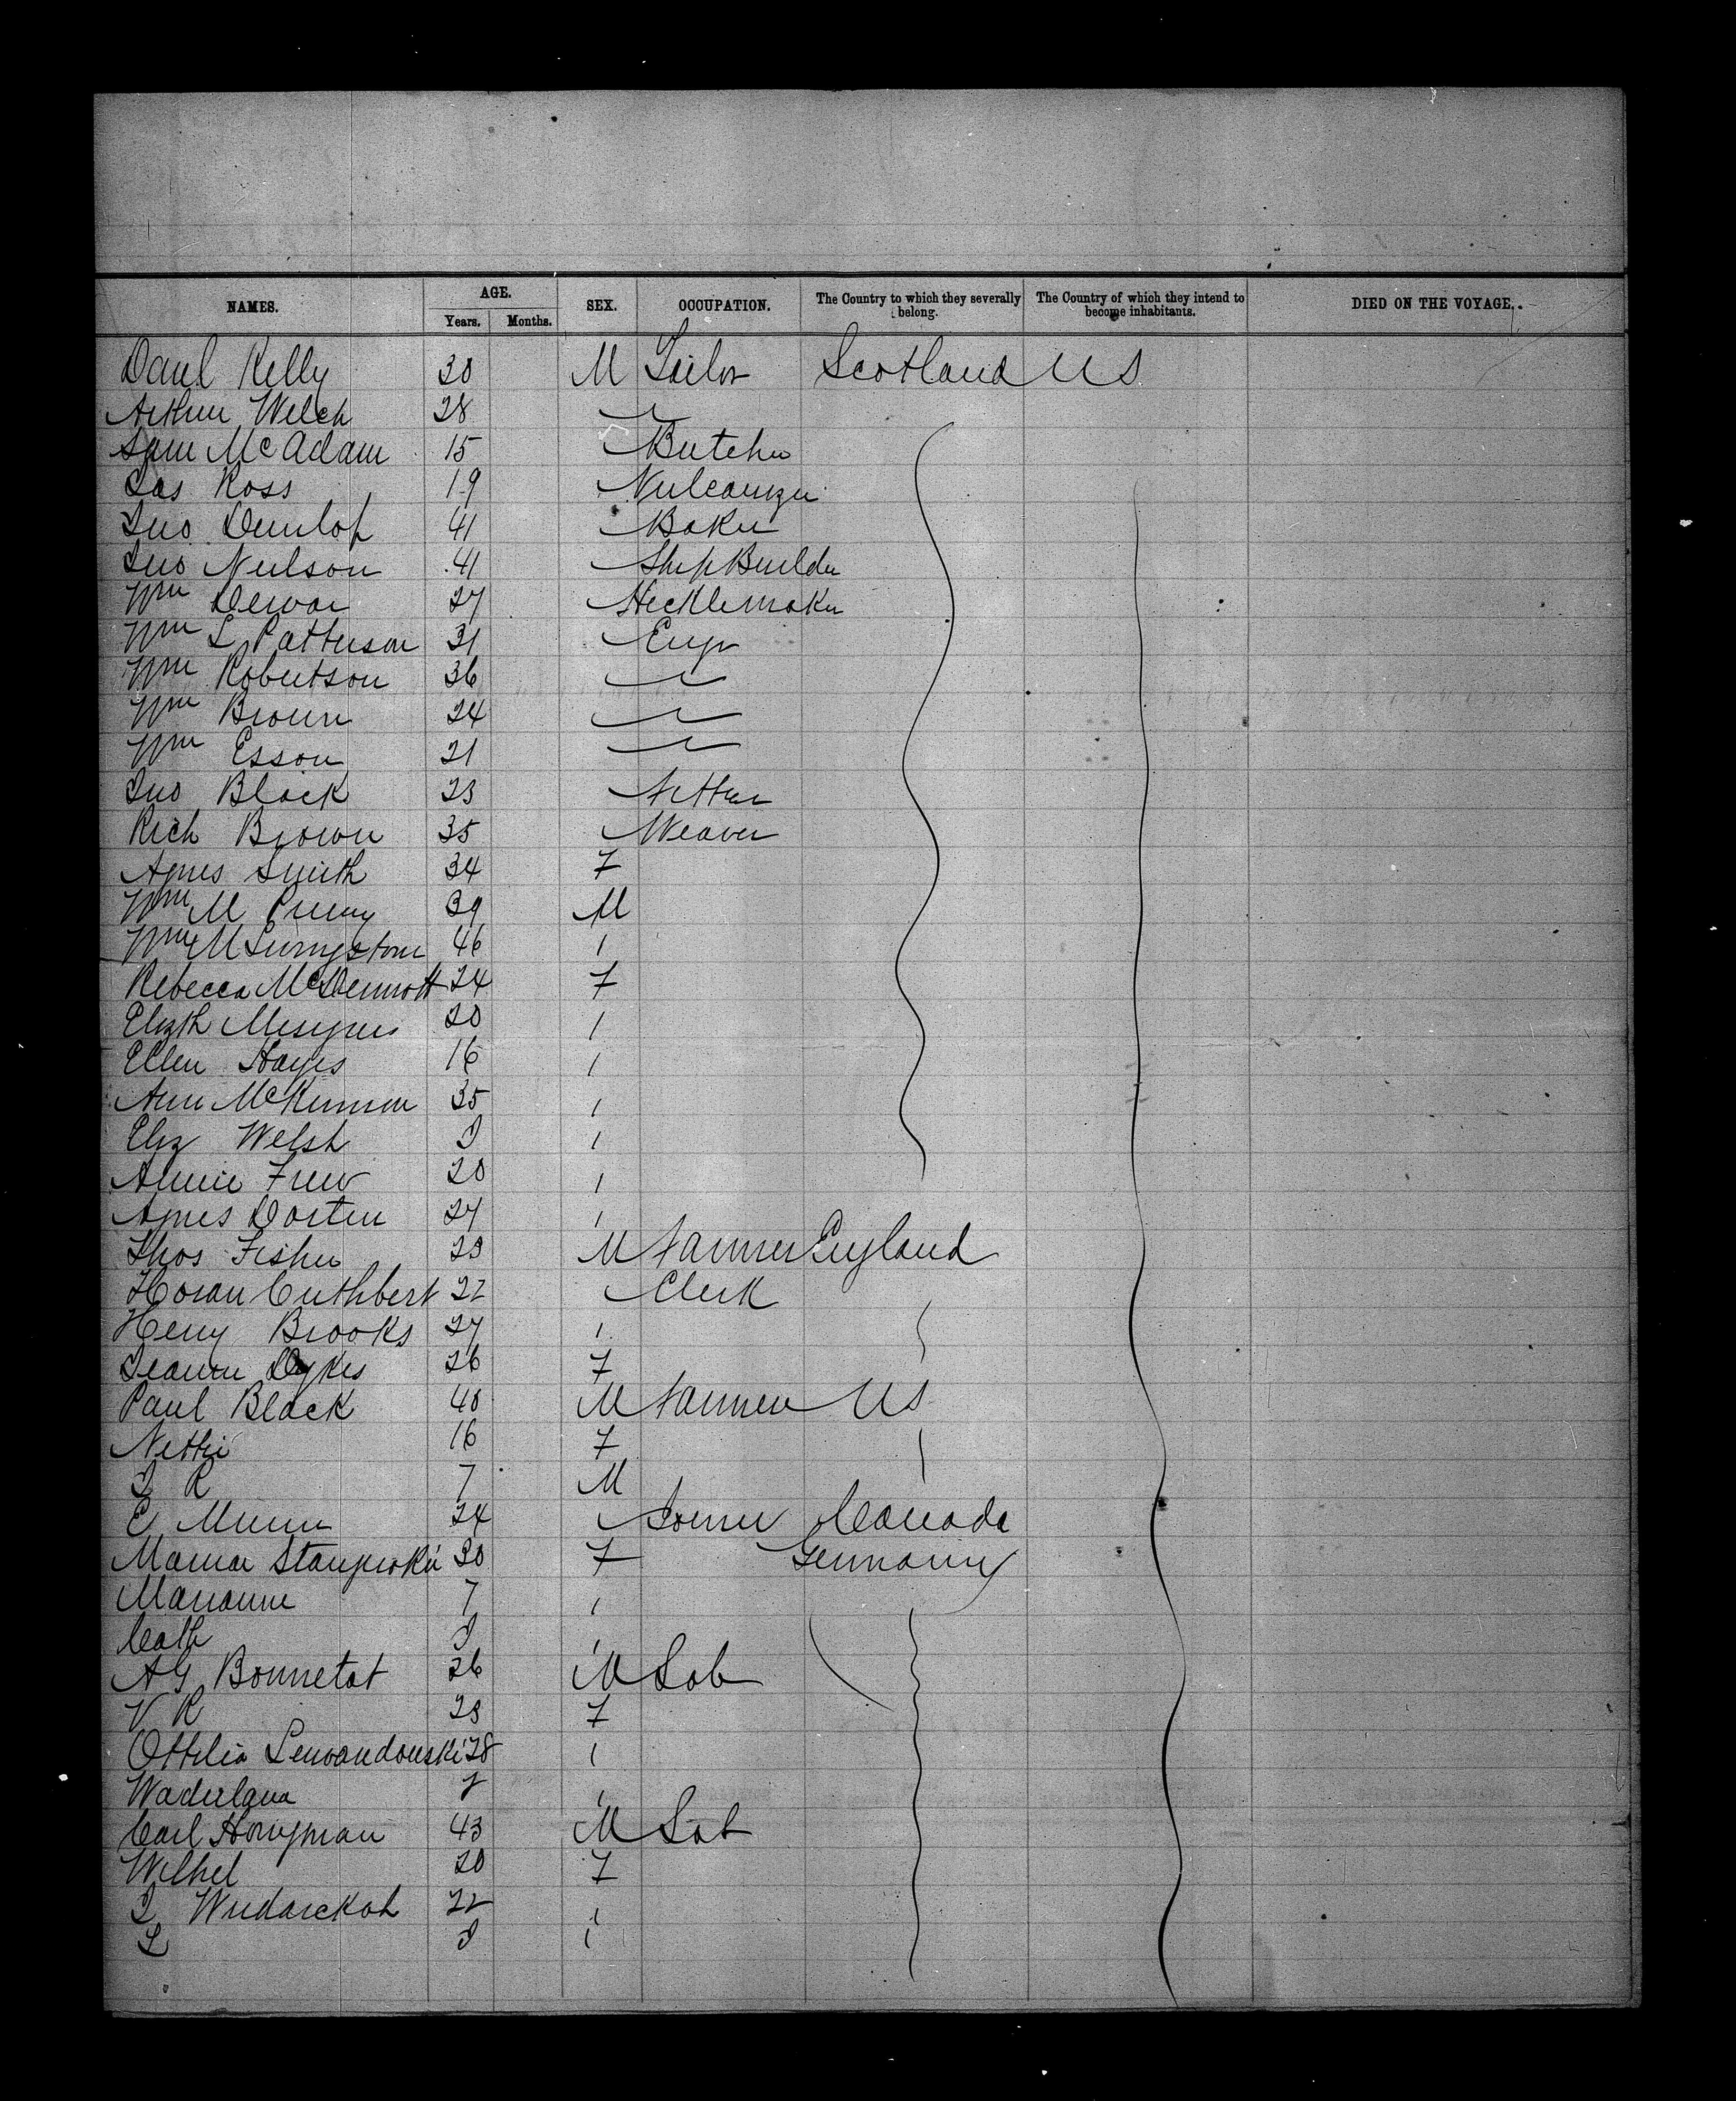 NAMES. AGE. SEX. OCCUPATION. The Country to which they severally belong. The Country of which they intend to become inhabitants. DIED ON THE VOYAGE.
Years. Months.
Danl Kelly 30 M Tailor Scotland US
Arthur Welch 28
Sam McAdam 15 Butcher
Jas Ross 19
Jno Dunlop 41 Baker
Jno Neilson 41 Ship Builder
Wm Dewar 27 Hecklemaker
Wm L Patterson 31 Engr
Wm Robertson 36
Wm Brown 24
Wm Esson 21
Jno Black 23
Rich Brown 35 Weaver
Agnes Smith 34 F
Wm M 39 M
Wm M Livingstone 46 1
Rebecca McDermott 24 F
Elizth 20 1
Ellen Hayes 16 1
Ann McKinnon 35 1
Eliz Welsh 1
Annie Frew 20 1
Agnes 27 1
Thos Fisher 23 M Farmer England
Horan Cuthbert 22 Clerk
Heny Brooks 27 1
Dykes 26 F
Paul Black 40 M Farmer US
Nettie 16 F
J R 7 M
E Munn 24 Canada
30 F Germany
Marianne 7 1
Cath 1
A G Bonnetat 26 M Lab
V R 28 F
Ottilia Lewandowski 28 1
1
Carl Honyman 43 M Lab
Wilhel 20 F
J 22 1
L 1